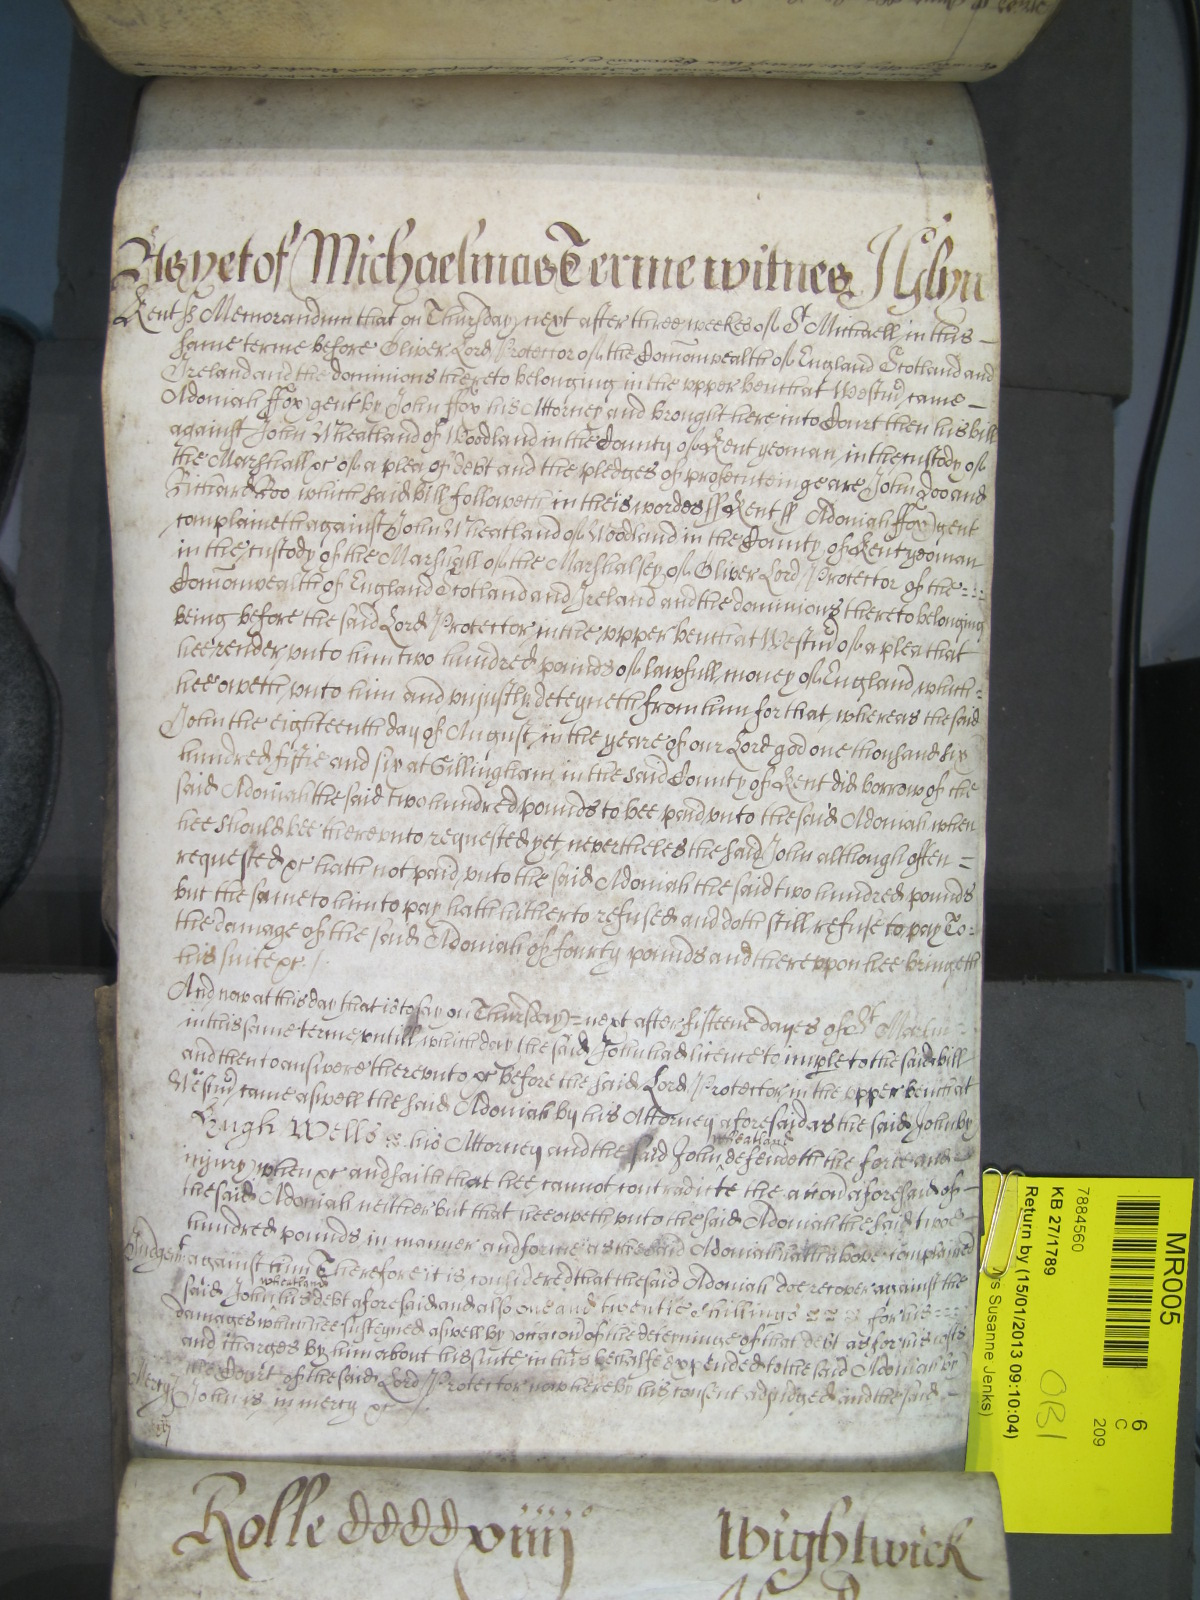 As yet of Michaelmas Terme witnes J Glyn
Kent ss Memorandum that on Thursday next after three weekes of St Michaell in this
same terme before Oliver Lord Protector of the Comonwealth of England Scotland and
Ireland and the dominions thereto belonging in the upper bench at Westmr came
Adoniah ffox gent by John ffox his Attorney and brought here into Court then his bill
against John Wheatland of Woodland in the County of Kent yeoman in the custody of
the Marshall &c of a plea of debt and the pledges of prosecuteinge are John Doo and
Richard Roo which said bill followeth in theis wordes ss Kent ss Adoniah ffox gent
complaineth against John Wheatland of Woodland in the County of Kent yeoman
in the custody of the Marshall of the Marshalsey of Oliver Lord Protector of the
Comonwealth of England Scotland and Ireland and the dominions thereto belonging
being before the said Lord Protector in the upper bench at Westmr of a plea that
hee render unto him two hundred pounds of lawfull money of England which
hee oweth unto him and unjustly deteyneth from him for that whereas the said
John the eighteenth day of August in the yeare of our Lord god one thousand six
hundred fiftie and six at Gillingham in the said County of Kent did borrow of the
said Adoniah the said two hundred pounds to bee paid unto the said Adoniah when
hee should bee thereunto requested yet nevertheles the said John although often =
requested &c hath not paid unto the said Adoniah the said two hundred pounds
but the same to him to pay hath hitherto refused and doth still refuse to pay To
the damage of the said Adoniah of fourty pounds and thereuppon hee bringeth
his suite &c
And now at this day that is to say on Thursday next after fifteene dayes of St Martin
in this same terme untill which day the said John had licence to imple to the said bill
and then to answere thereunto &c before the said Lord Protector in the upper bench at
Westmr came aswell the said Adoniah by his Attorney aforesaid as the said John by
Hugh Wells his Attorney and the said John wheatland defendeth the force and
injury when &c and saith that hee cannot contradicte the accon aforesaid of
the said Adoniah neither but that hee oweth unto the said Adoniah the said twoe
hundred pounds in manner and forme as the said Adoniah hath above complained
Judgemt against him Therefore it is considered that the said Adoniah doe recover against the
said John wheatland his debt aforesaid and also one and twentie shillings for his
damages which hee susteyned aswell by occacon of the deteyninge of that debt as for his costs
and charges by him about his suite in this behalfe expended to the said Adoniah by
the Court of the said Lord Protector now here by his consent adjudged and the said
Mercy John is in mercy &c
Rolle ddddxviiij
Wightwick
MR005
6
C
209
7884560
KB 27/1789
Return by (15/01/2013 09:10:04)
Susanne Jenks)